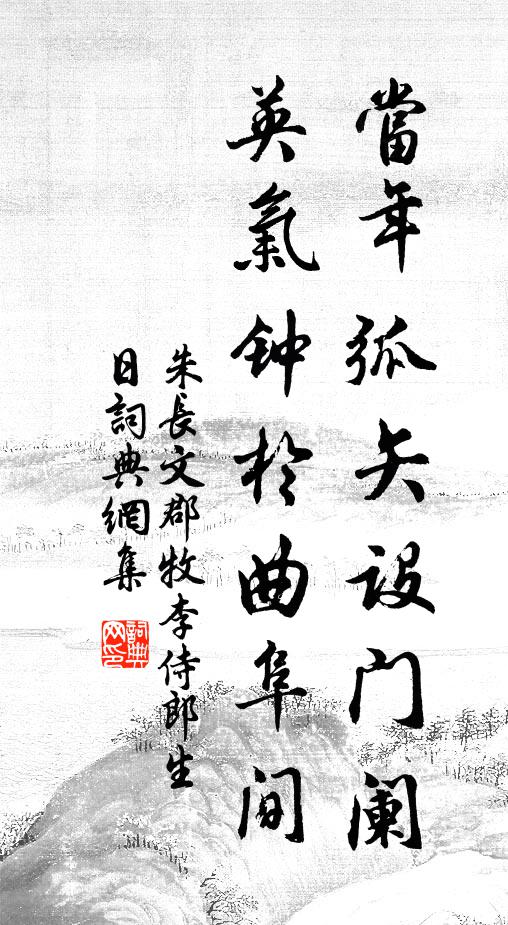 當年弧矢設门闌
英氣钟於曲阜間
朱長文郡牧李侍郎生
日詞典網集
詞典網印